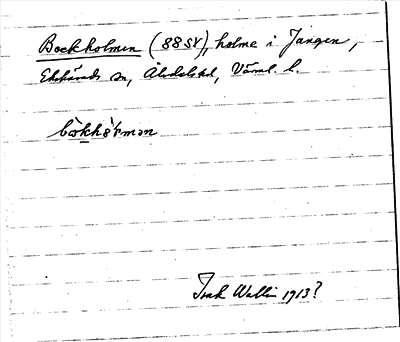 Bockholmen (88SV), holme i Jangen,
Ekshärads sn, Älvdals hd, Värml. l.
Isak Wallin 1913?